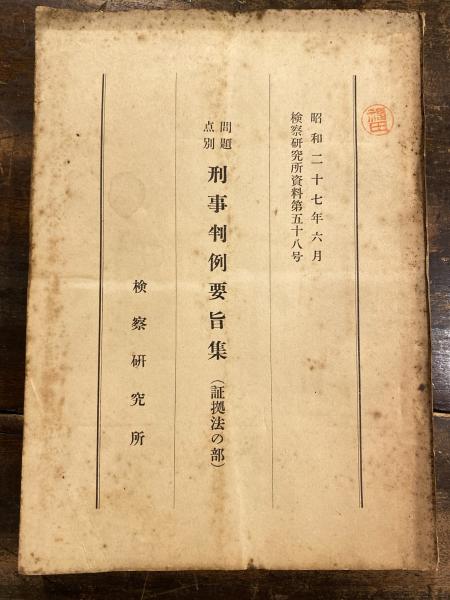 福田
昭和二十七年六月
検察研究所資料第五十八号
問題点別
刑事判例要旨集（証拠法の部）
検察研究所